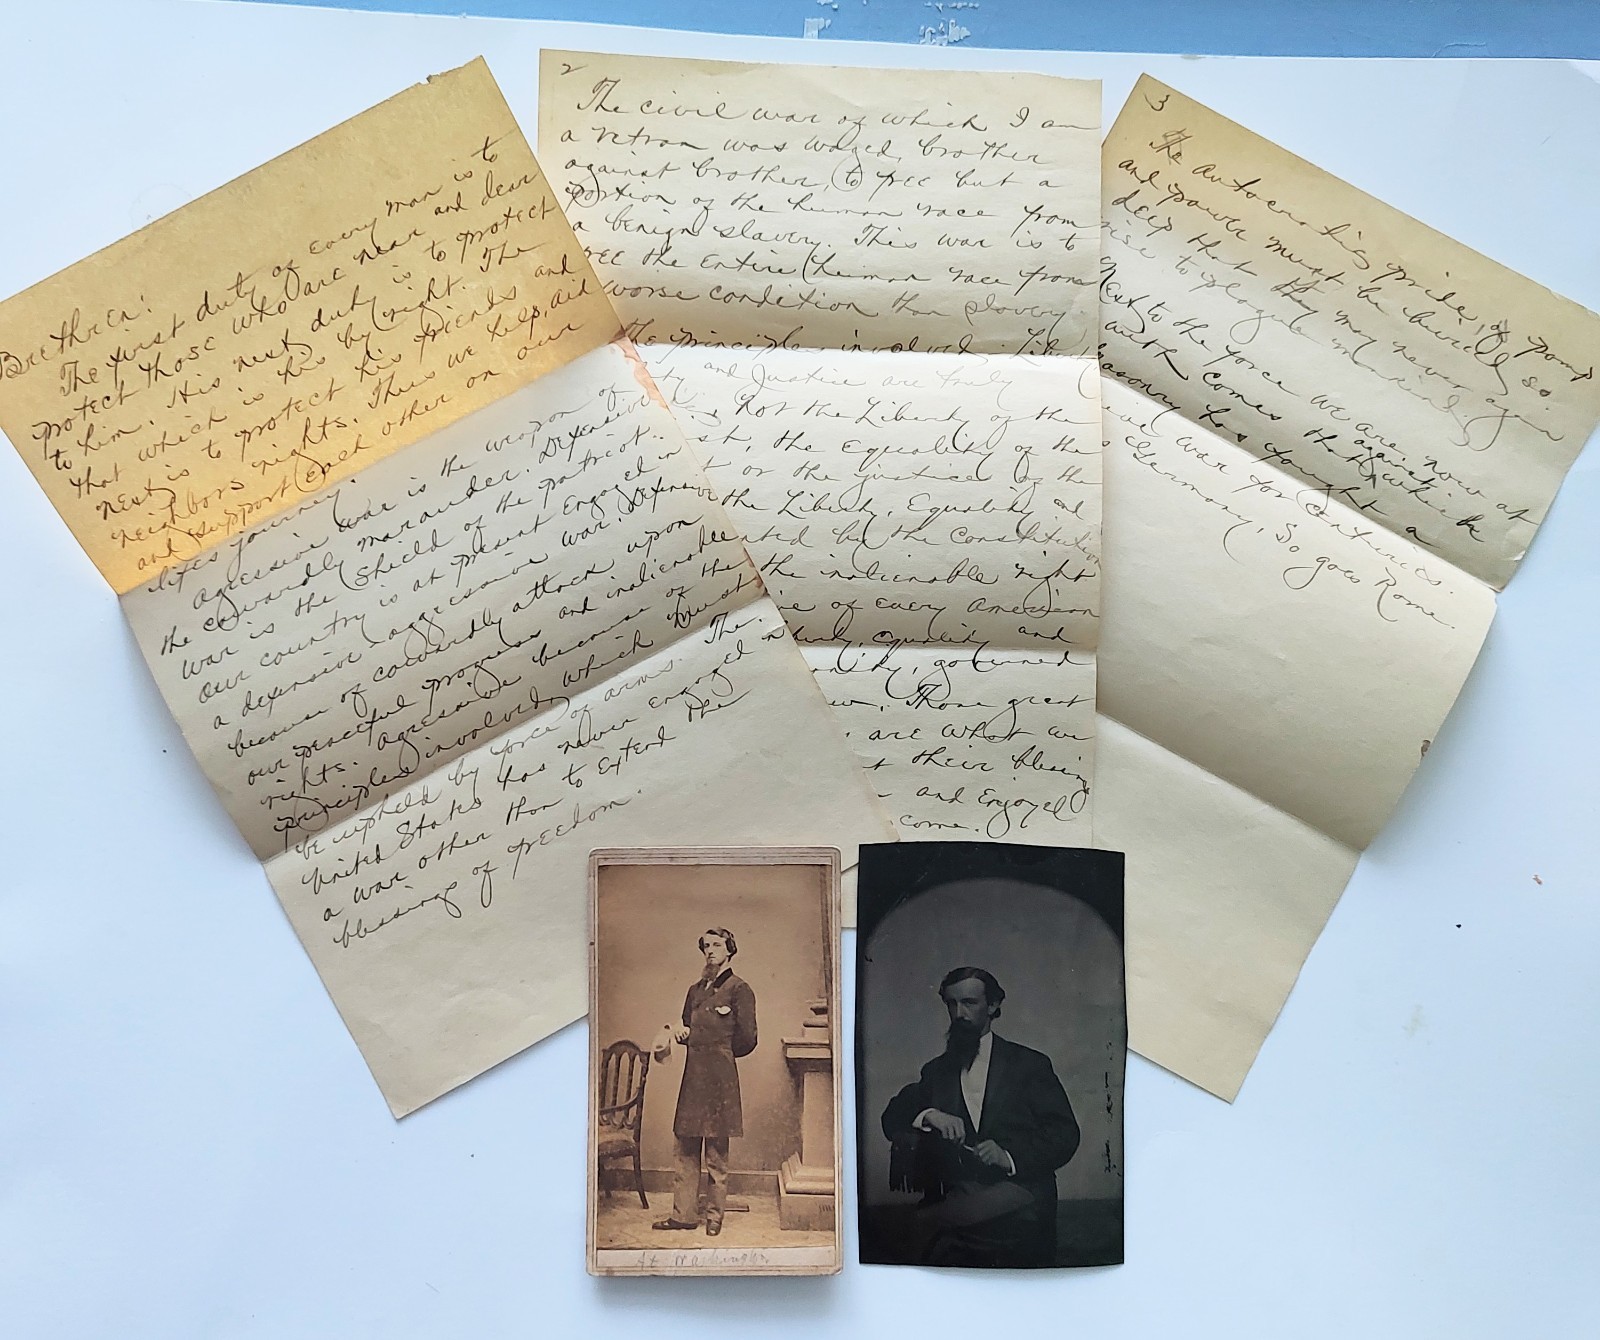 Brethren!
The first duty of every man is to
protect those who are near and dear
to him. His next duty is to protect
that which is his by right. The
next is to protect his friends and
neighbors rights. Thus we help, aid
and support each other on our
lifes journey.
Agressive war is the weapon of
the cowardly marauder. Defensive
war is the shield of the patriot.
Our country is at present engaged in
a defensive-aggressive war. Defensive
because of cowardly attack upon
our peaceful progress and inalienable
rights. Agressive because of the
principles involved, which must
be upheld by force of arms. The
United States has never engaged in
a war other than to extend the
blessings of freedom.
2
The civil war of which I am
a vetran was waged, brother
against brother, to free but a
portion of the human race from
a benign slavery. This war is to
free the entire human race from
worse condition than slavery.
the principles involved. Liberty
and Justice are truly
Not the Liberty of the
the Equality of the
or the justice of the
the Liberty, Equality and
by the Constitution
the inalienable right
of every American
equality and
governed
Those great
are what we
their blessings
and Enjoyed
come.
3
The Autocratic pride, of pomp
and power must be buried so
deep that they may never again
rise to plague mankind.
Next to the force we are now at
with comes that against which
Masonry has fought a
war for centuries.
Germany, So goes Rome.
At Washington